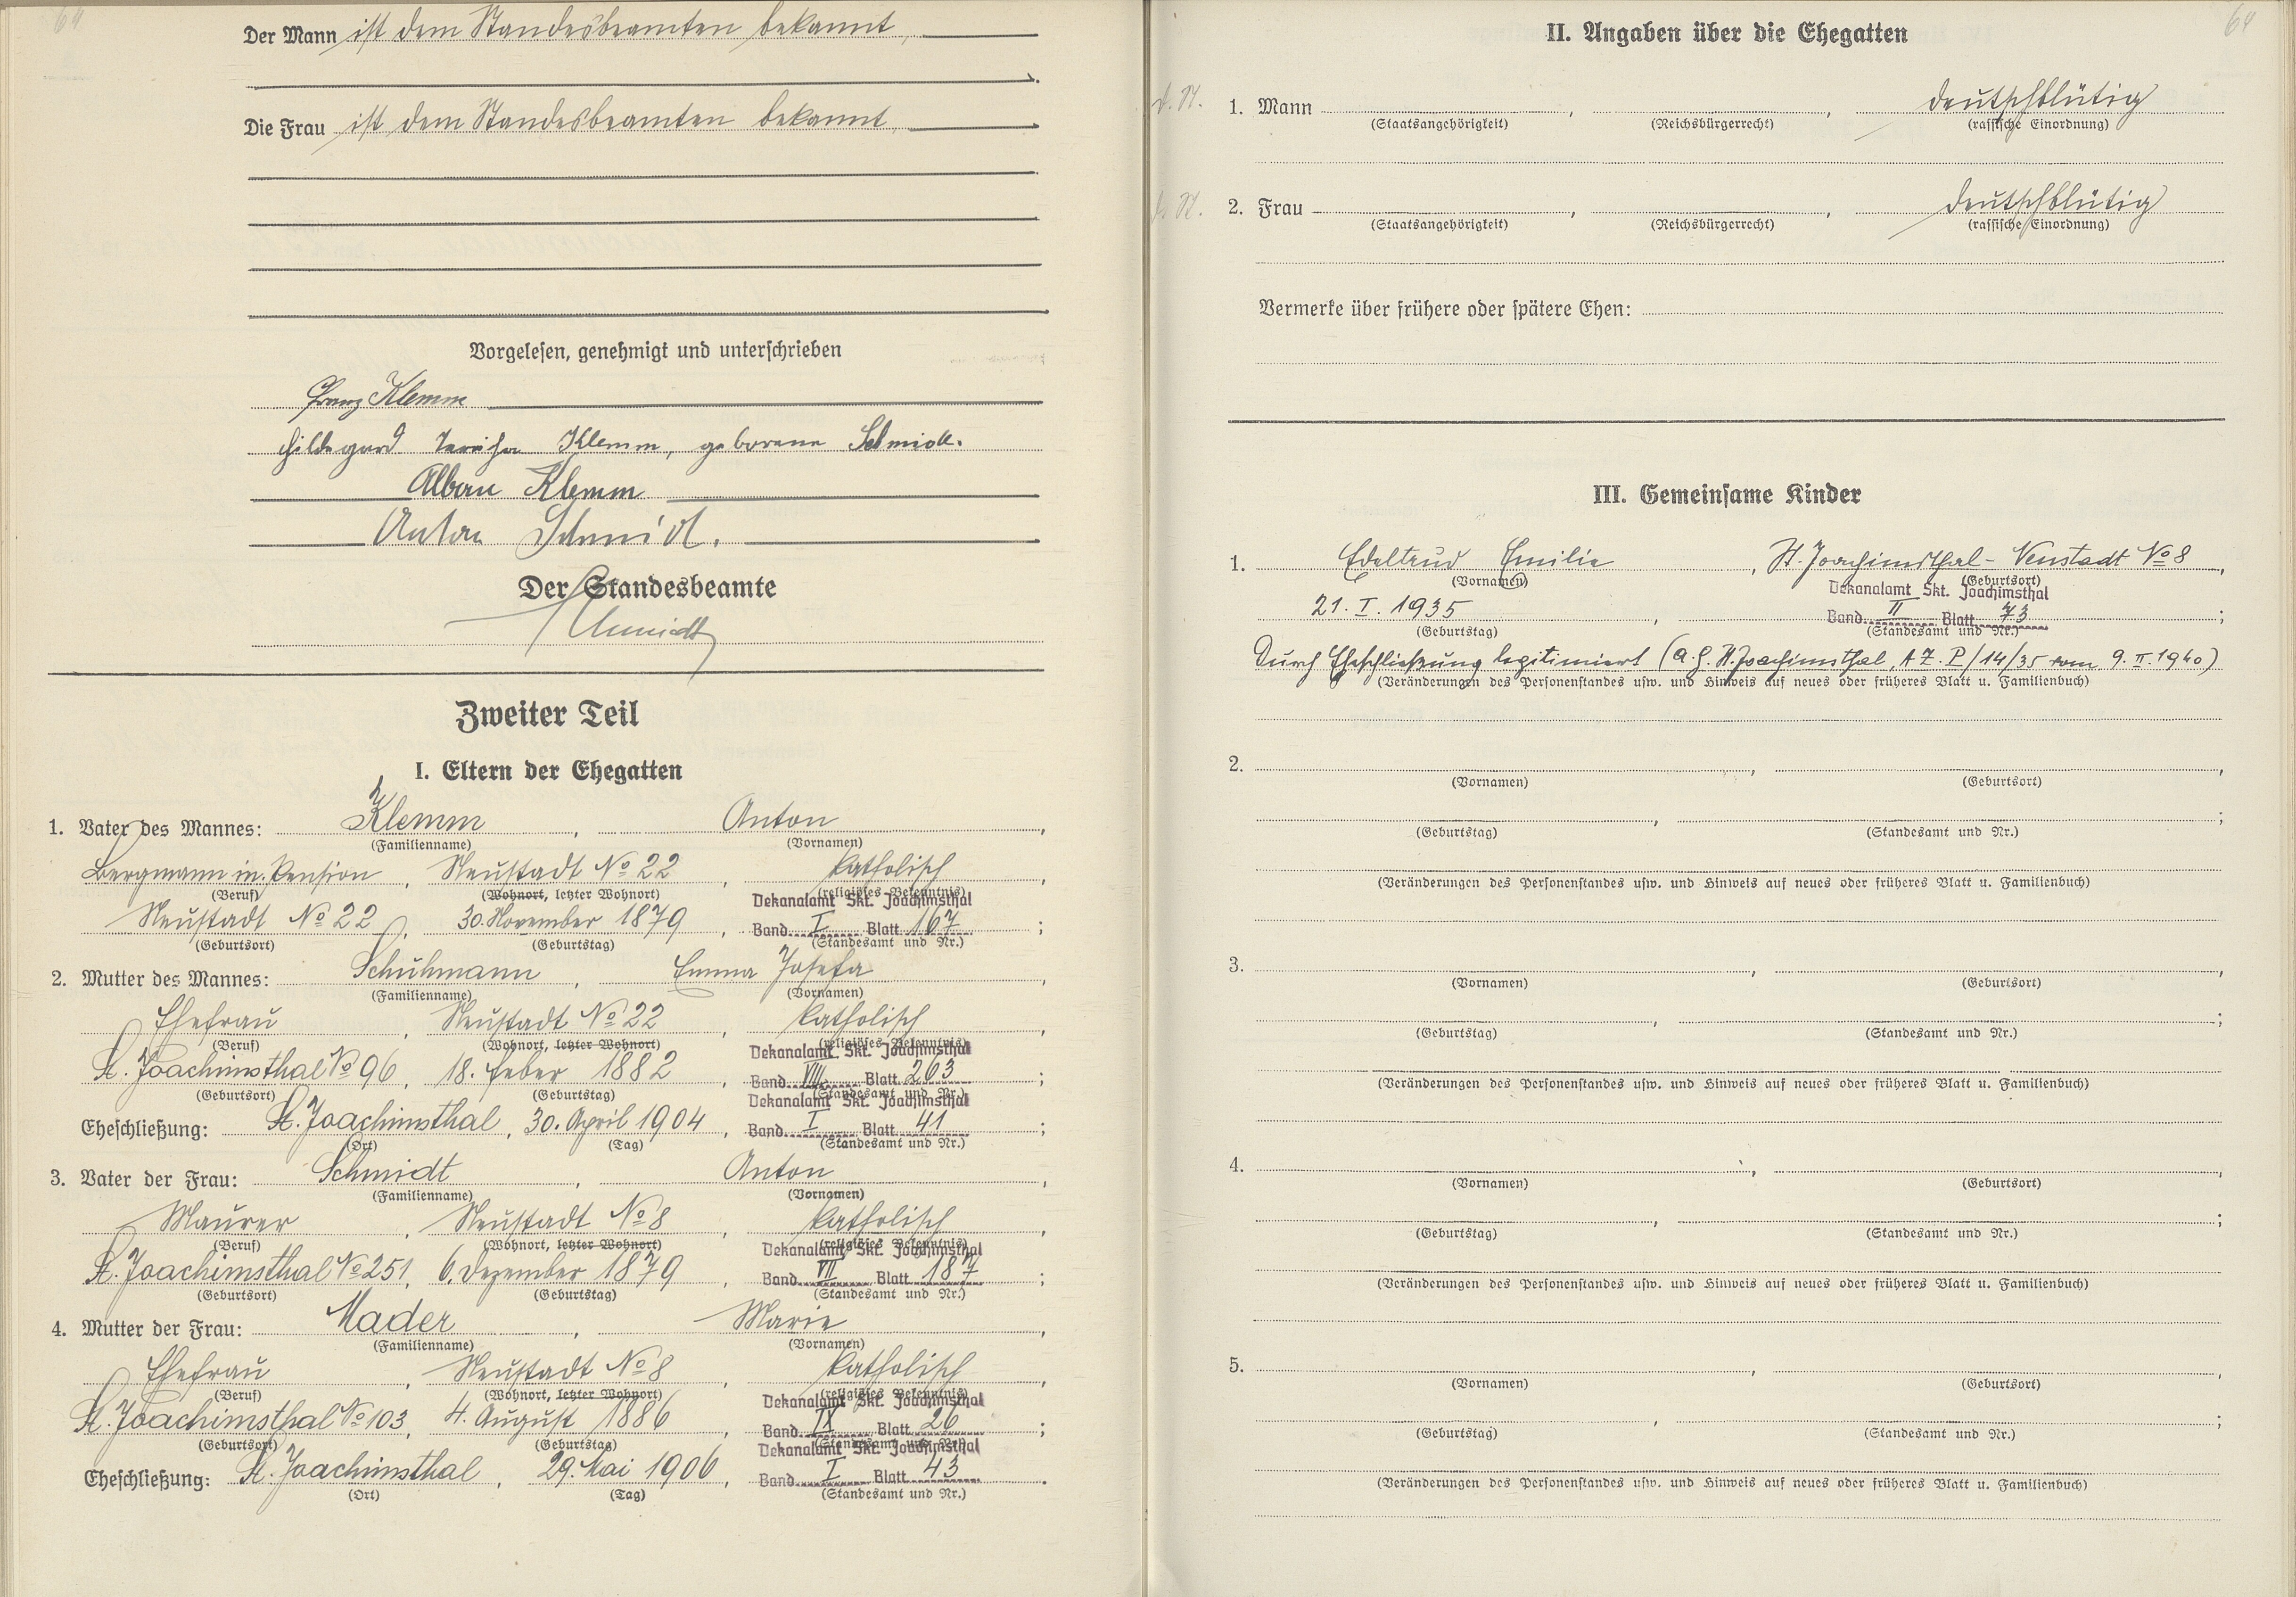 64
Der Mann ist dem Standesbeamten bekannt,
Die Frau ist dem Standesbeamten bekannt,
Vorgelesen, genehmigt und unterschrieben
Franz Klemm
Hildegard Teresia Klemm, geborene Schmidt.
Alban Klemm
Anton Schmidt.
Der Standesbeamte
Schmidt
Zweiter Teil
I. Eltern der Ehegatten
1. Vater des Mannes: Klemm, Anton,
(Familienname) (Vornamen)
Bergmann in Pension, Neustadt No 22, katholisch,
(Beruf) (Wohnort, letzter Wohnort) (religiöses Bekenntnis)
Dekanalamt Skt. Joachimsthal
Neustadt No 22, 30. November 1879, Band I Blatt 167;
(Geburtsort) (Geburtstag) (Standesamt und Nr.)
2. Mutter des Mannes: Schuhmann, Emma Josefa,
(Familienname) (Vornamen)
Ehefrau, Neustadt No 22, katholisch,
(Beruf) (Wohnort, letzter Wohnort) (religiöses Bekenntnis)
Dekanalamt Skt. Joachimsthal
St. Joachimsthal No 96, 18. Feber 1882, Band VIII Blatt 263;
(Geburtsort) (Geburtstag) (Standesamt und Nr.)
Dekanalamt Skt. Joachimsthal
Eheschließung: St. Joachimsthal, 30. April 1904, Band I Blatt 41;
(Ort) (Tag) (Standesamt und Nr.)
3. Vater der Frau: Schmidt, Anton,
(Familienname) (Vornamen)
Maurer, Neustadt No 8, katholisch,
(Beruf) (Wohnort, letzter Wohnort) (religiöses Bekenntnis)
Dekanalamt Skt. Joachimsthal
St. Joachimsthal No 251, 6. Dezember 1879, Band VII Blatt 187;
(Geburtsort) (Geburtstag) (Standesamt und Nr.)
4. Mutter der Frau: Mader, Marie,
(Familienname) (Vornamen)
Ehefrau, Neustadt No 8, katholisch,
(Beruf) (Wohnort, letzter Wohnort) (religiöses Bekenntnis)
Dekanalamt Skt. Joachimsthal
St. Joachimsthal No 103, 4. August 1886, Band IX Blatt 26;
(Geburtsort) (Geburtstag) (Standesamt und Nr.)
Dekanalamt Skt. Joachimsthal
Eheschließung: St. Joachimsthal, 29. Mai 1906, Band I Blatt 43.
(Ort) (Tag) (Standesamt und Nr.)
64
II. Angaben über die Ehegatten
1. Mann , , deutschblütig
(Staatsangehörigkeit) (Reichsbürgerrecht) (rassische Einordnung)
2. Frau , , deutschblütig
(Staatsangehörigkeit) (Reichsbürgerrecht) (rassische Einordnung)
Vermerke über frühere oder spätere Ehen:
III. Gemeinsame Kinder
1. Edeltrud Emilie, St. Joachimsthal-Neustadt No 8,
(Vornamen) (Geburtsort)
Dekanalamt Skt. Joachimsthal
21. I. 1935, Band II Blatt 73;
(Geburtstag) (Standesamt und Nr.)
Durch Eheschließung legitimiert (A.G. St. Joachimsthal, AZ. P/14/35 vom 9. II. 1940)
(Veränderungen des Personenstandes usw. und Hinweis auf neues oder früheres Blatt u. Familienbuch)
2. , ,
(Vornamen) (Geburtsort)
, ;
(Geburtstag) (Standesamt und Nr.)
(Veränderungen des Personenstandes usw. und Hinweis auf neues oder früheres Blatt u. Familienbuch)
3. , ,
(Vornamen) (Geburtsort)
, ;
(Geburtstag) (Standesamt und Nr.)
(Veränderungen des Personenstandes usw. und Hinweis auf neues oder früheres Blatt u. Familienbuch)
4. , ,
(Vornamen) (Geburtsort)
, ;
(Geburtstag) (Standesamt und Nr.)
(Veränderungen des Personenstandes usw. und Hinweis auf neues oder früheres Blatt u. Familienbuch)
5. , ,
(Vornamen) (Geburtsort)
, ;
(Geburtstag) (Standesamt und Nr.)
(Veränderungen des Personenstandes usw. und Hinweis auf neues oder früheres Blatt u. Familienbuch)